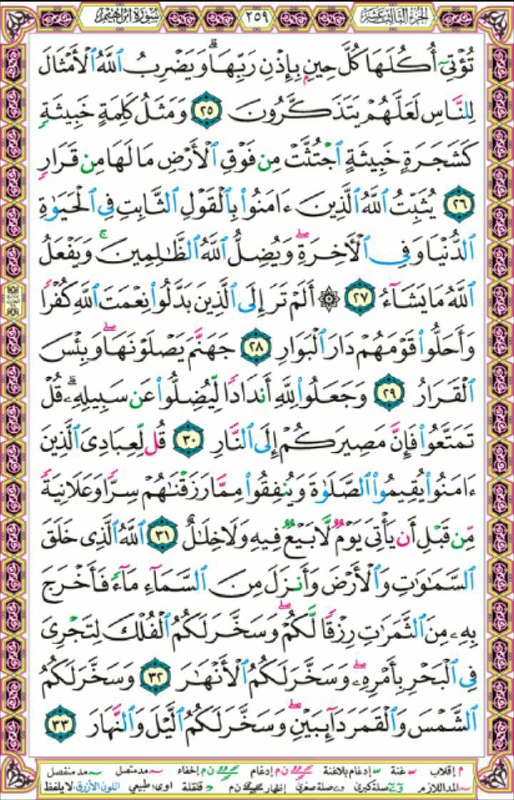 الجزء الثالث عشر
٢٥٩
سورة ابراهيم
تُؤْتِىٓ أُكُلَهَا كُلَّ حِينٍۭ بِإِذْنِ رَبِّهَاۗ وَيَضْرِبُ اللَّهُ الْأَمْثَالَ
لِلنَّاسِ لَعَلَّهُمْ يَتَذَكَّرُونَ ٢٥ وَمَثَلُ كَلِمَةٍ خَبِيثَةٍ
كَشَجَرَةٍ خَبِيثَةٍ اجْتُثَّتْ مِن فَوْقِ الْأَرْضِ مَا لَهَا مِن قَرَارٍ
٢٦ يُثَبِّتُ اللَّهُ الَّذِينَ ءَامَنُوا بِالْقَوْلِ الثَّابِتِ فِى الْحَيَوٰةِ
الدُّنْيَا وَفِى الْآخِرَةِۖ وَيُضِلُّ اللَّهُ الظَّٰلِمِينَۚ وَيَفْعَلُ
اللَّهُ مَا يَشَآءُ ٢٧ ۞ أَلَمْ تَرَ إِلَى الَّذِينَ بَدَّلُوا نِعْمَتَ اللَّهِ كُفْرًا
وَأَحَلُّوا قَوْمَهُمْ دَارَ الْبَوَارِ ٢٨ جَهَنَّمَ يَصْلَوْنَهَاۖ وَبِئْسَ
الْقَرَارُ ٢٩ وَجَعَلُوا لِلَّهِ أَندَادًا لِّيُضِلُّوا عَن سَبِيلِهِۦۗ قُلْ
تَمَتَّعُوا فَإِنَّ مَصِيرَكُمْ إِلَى النَّارِ ٣٠ قُل لِّعِبَادِىَ الَّذِينَ
ءَامَنُوا يُقِيمُوا الصَّلَوٰةَ وَيُنفِقُوا مِمَّا رَزَقْنَٰهُمْ سِرًّا وَعَلَانِيَةً
مِّن قَبْلِ أَن يَأْتِىَ يَوْمٌ لَّا بَيْعٌ فِيهِ وَلَا خِلَٰلٌ ٣١ اللَّهُ الَّذِى خَلَقَ
السَّمَٰوَٰتِ وَالْأَرْضَ وَأَنزَلَ مِنَ السَّمَآءِ مَآءً فَأَخْرَجَ
بِهِۦ مِنَ الثَّمَرَٰتِ رِزْقًا لَّكُمْۖ وَسَخَّرَ لَكُمُ الْفُلْكَ لِتَجْرِىَ
فِى الْبَحْرِ بِأَمْرِهِۦۖ وَسَخَّرَ لَكُمُ الْأَنْهَٰرَ ٣٢ وَسَخَّرَ لَكُمُ
الشَّمْسَ وَالْقَمَرَ دَآئِبَيْنِۖ وَسَخَّرَ لَكُمُ الَّيْلَ وَالنَّهَارَ ٣٣
م إقلاب غنة إدغام بلاغنة ن م إدغام ن م إخفاء مد متصل مد منفصل
المد اللازم صلة كبرى صلة صغرى إظهار ن م قلقلة اوى: طبيعي اللون الأزرق: لا يلفظ